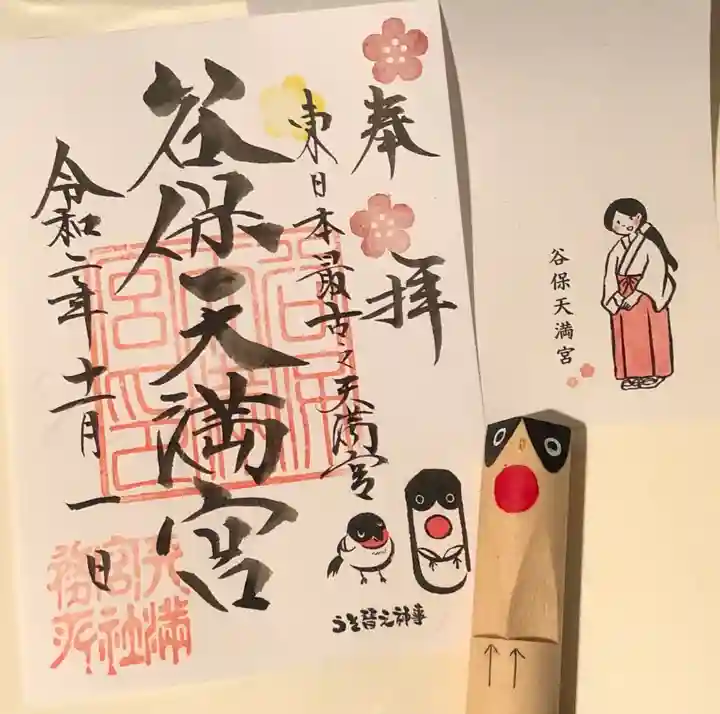 奉拝
東日本最古之天満宮
谷保天満宮
令和二年十一月一日
うそ替え神事
天満宮社務所
谷保天満宮